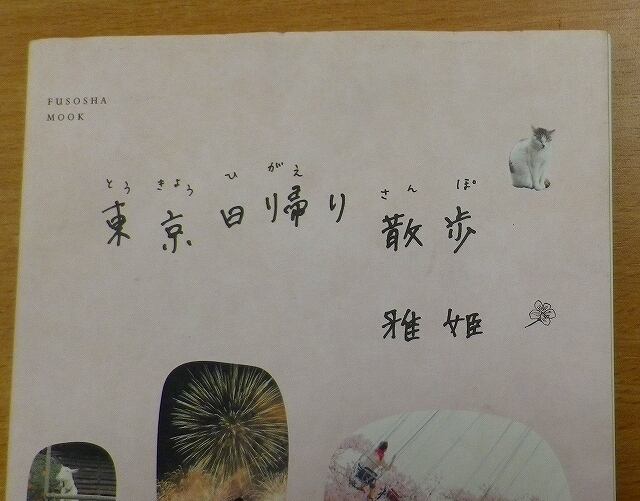 FUSOSHA
MOOK
とうきょうひがえ さんぽ
東京日帰り 散歩
雅姫